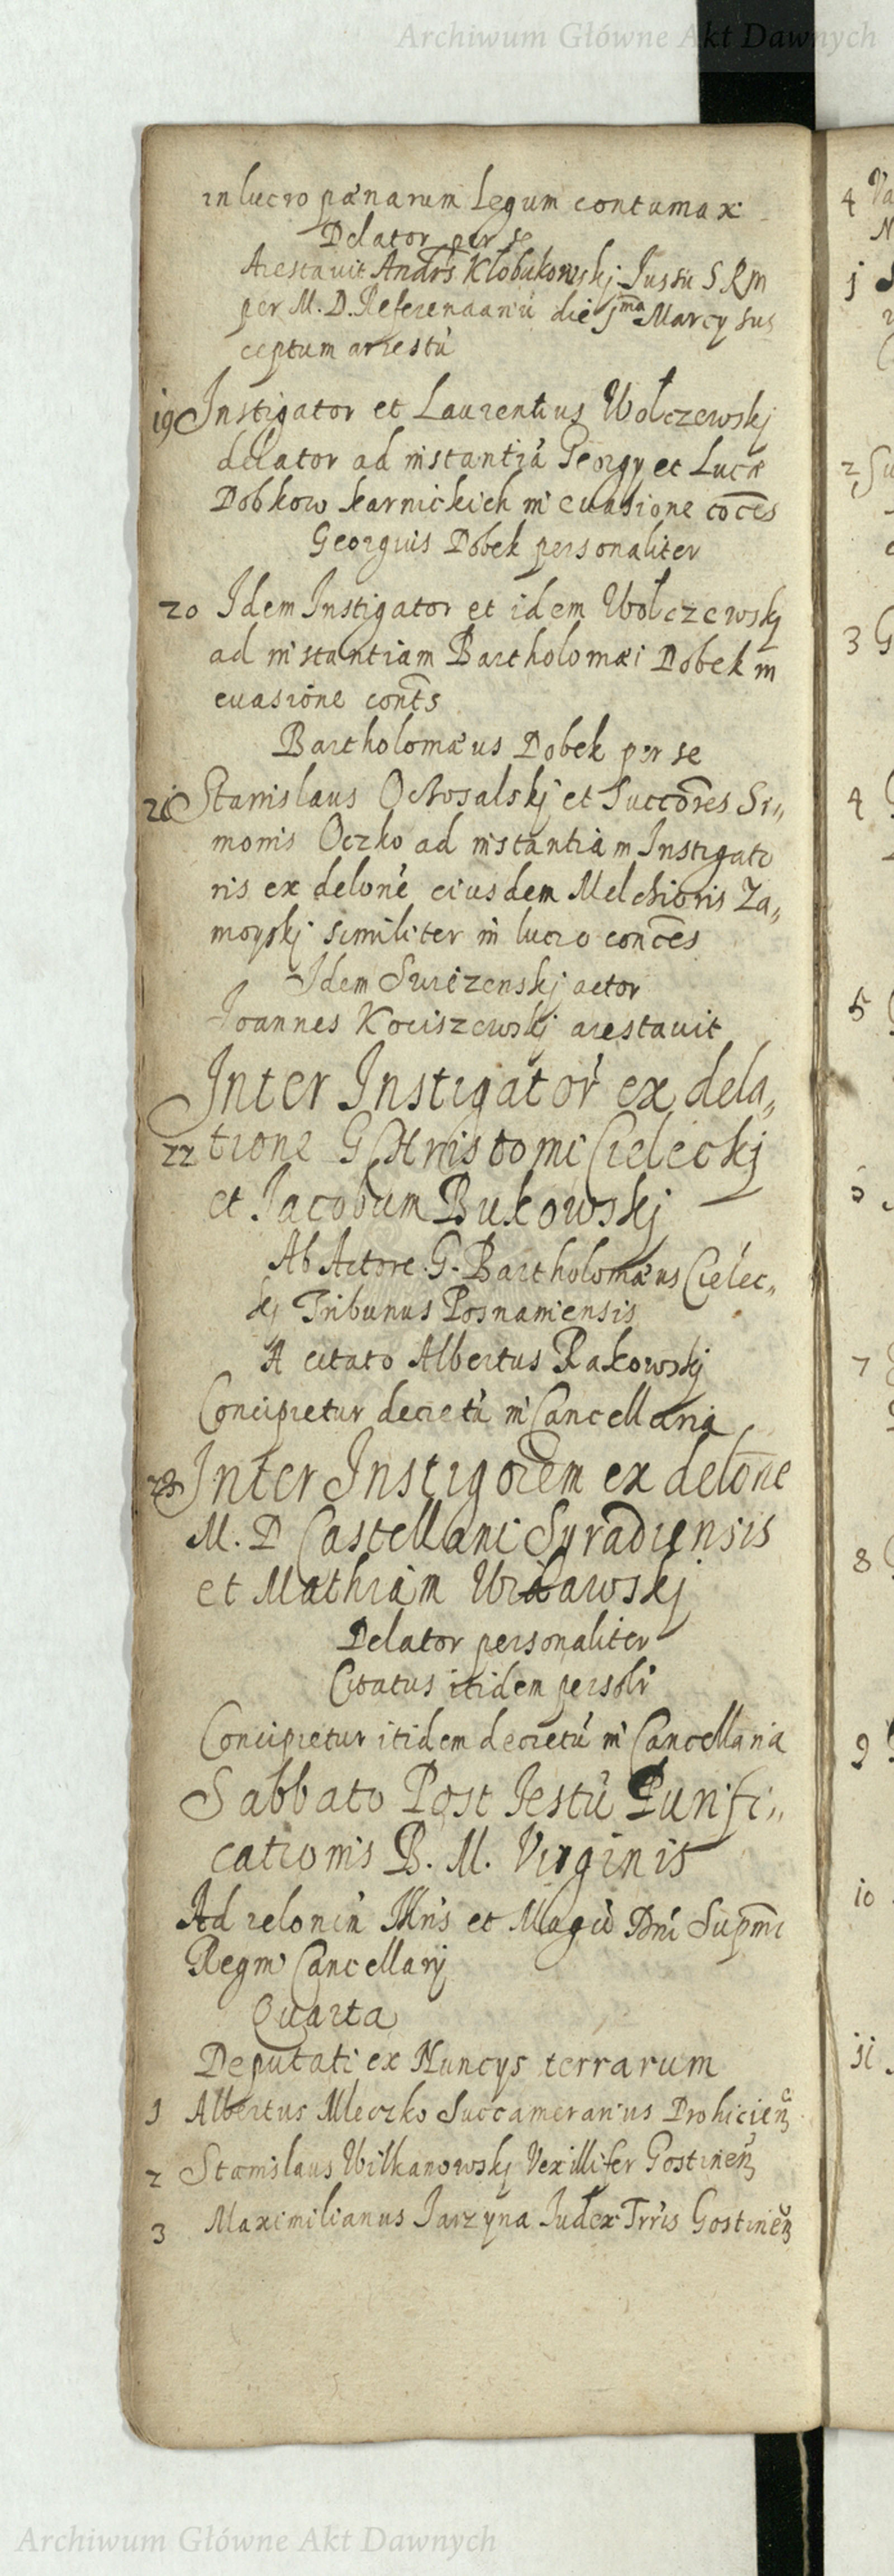 Archiwum Główne Akt Dawnych
in lucro pænarum Legum contumax
Delator per se
Arestavit Andrs Klobukowskj Jussu S R M
per M. D. Referendariũ die 1ma Marcy sus
ceptum arrestũ
19 Instigator et Laurentius Wolczewskj
delator ad instantiã Georgy et Lucæ
Dobkow karnickich in evasione coces
Georgius Dobek personaliter
20 Idem Instigator et idem Wolczewskj
ad instantiam Bartholomæi Dobek in
evasione conts
Bartholomæus Dobek per se
21 Stanislaus Ochosalskj et Succores Si„
monis Oczko ad instantiam Instigato
ris ex delone eiusdem Melchioris Za„
moyskj similiter in lucro conces
Idem actor
Joannes Kociszewskj arestavit
Inter Instigatorẽ ex dela„
22 tione G Christomi Cieleckj
et Jacobum Bukowskj
Ab Actore G. Bartholomæus Cielec„
kj Tribunus Posnaniensis
A citato Albertus Rakowskj
Concipietur decretũ in Cancellaria
23 Inter Instigorem ex delone
M. D Castellani Syradiensis
et Mathiam
Delator personaliter
Citatus itidem persolr
Concipietur itidem decretũ in Cancellaria
Sabbato Post Festũ Purifi„
cationis B. M. Virginis
Ad relonem Illris et Magci Dni Supmi
Regni Cancellarij
Quarta
Deputati ex Nuncys terrarum
1 Albertus Mleczko Succamerarius Drohicien
2 Stanislaus Wilkanowskj Vexillifer Gostinen
3 Maximilianus Jarzyna Judex Trris Gostinen
4 Va
N
1
2 Su
3 G
4
5
6
7
8
9
10
11
Archiwum Główne Akt Dawnych